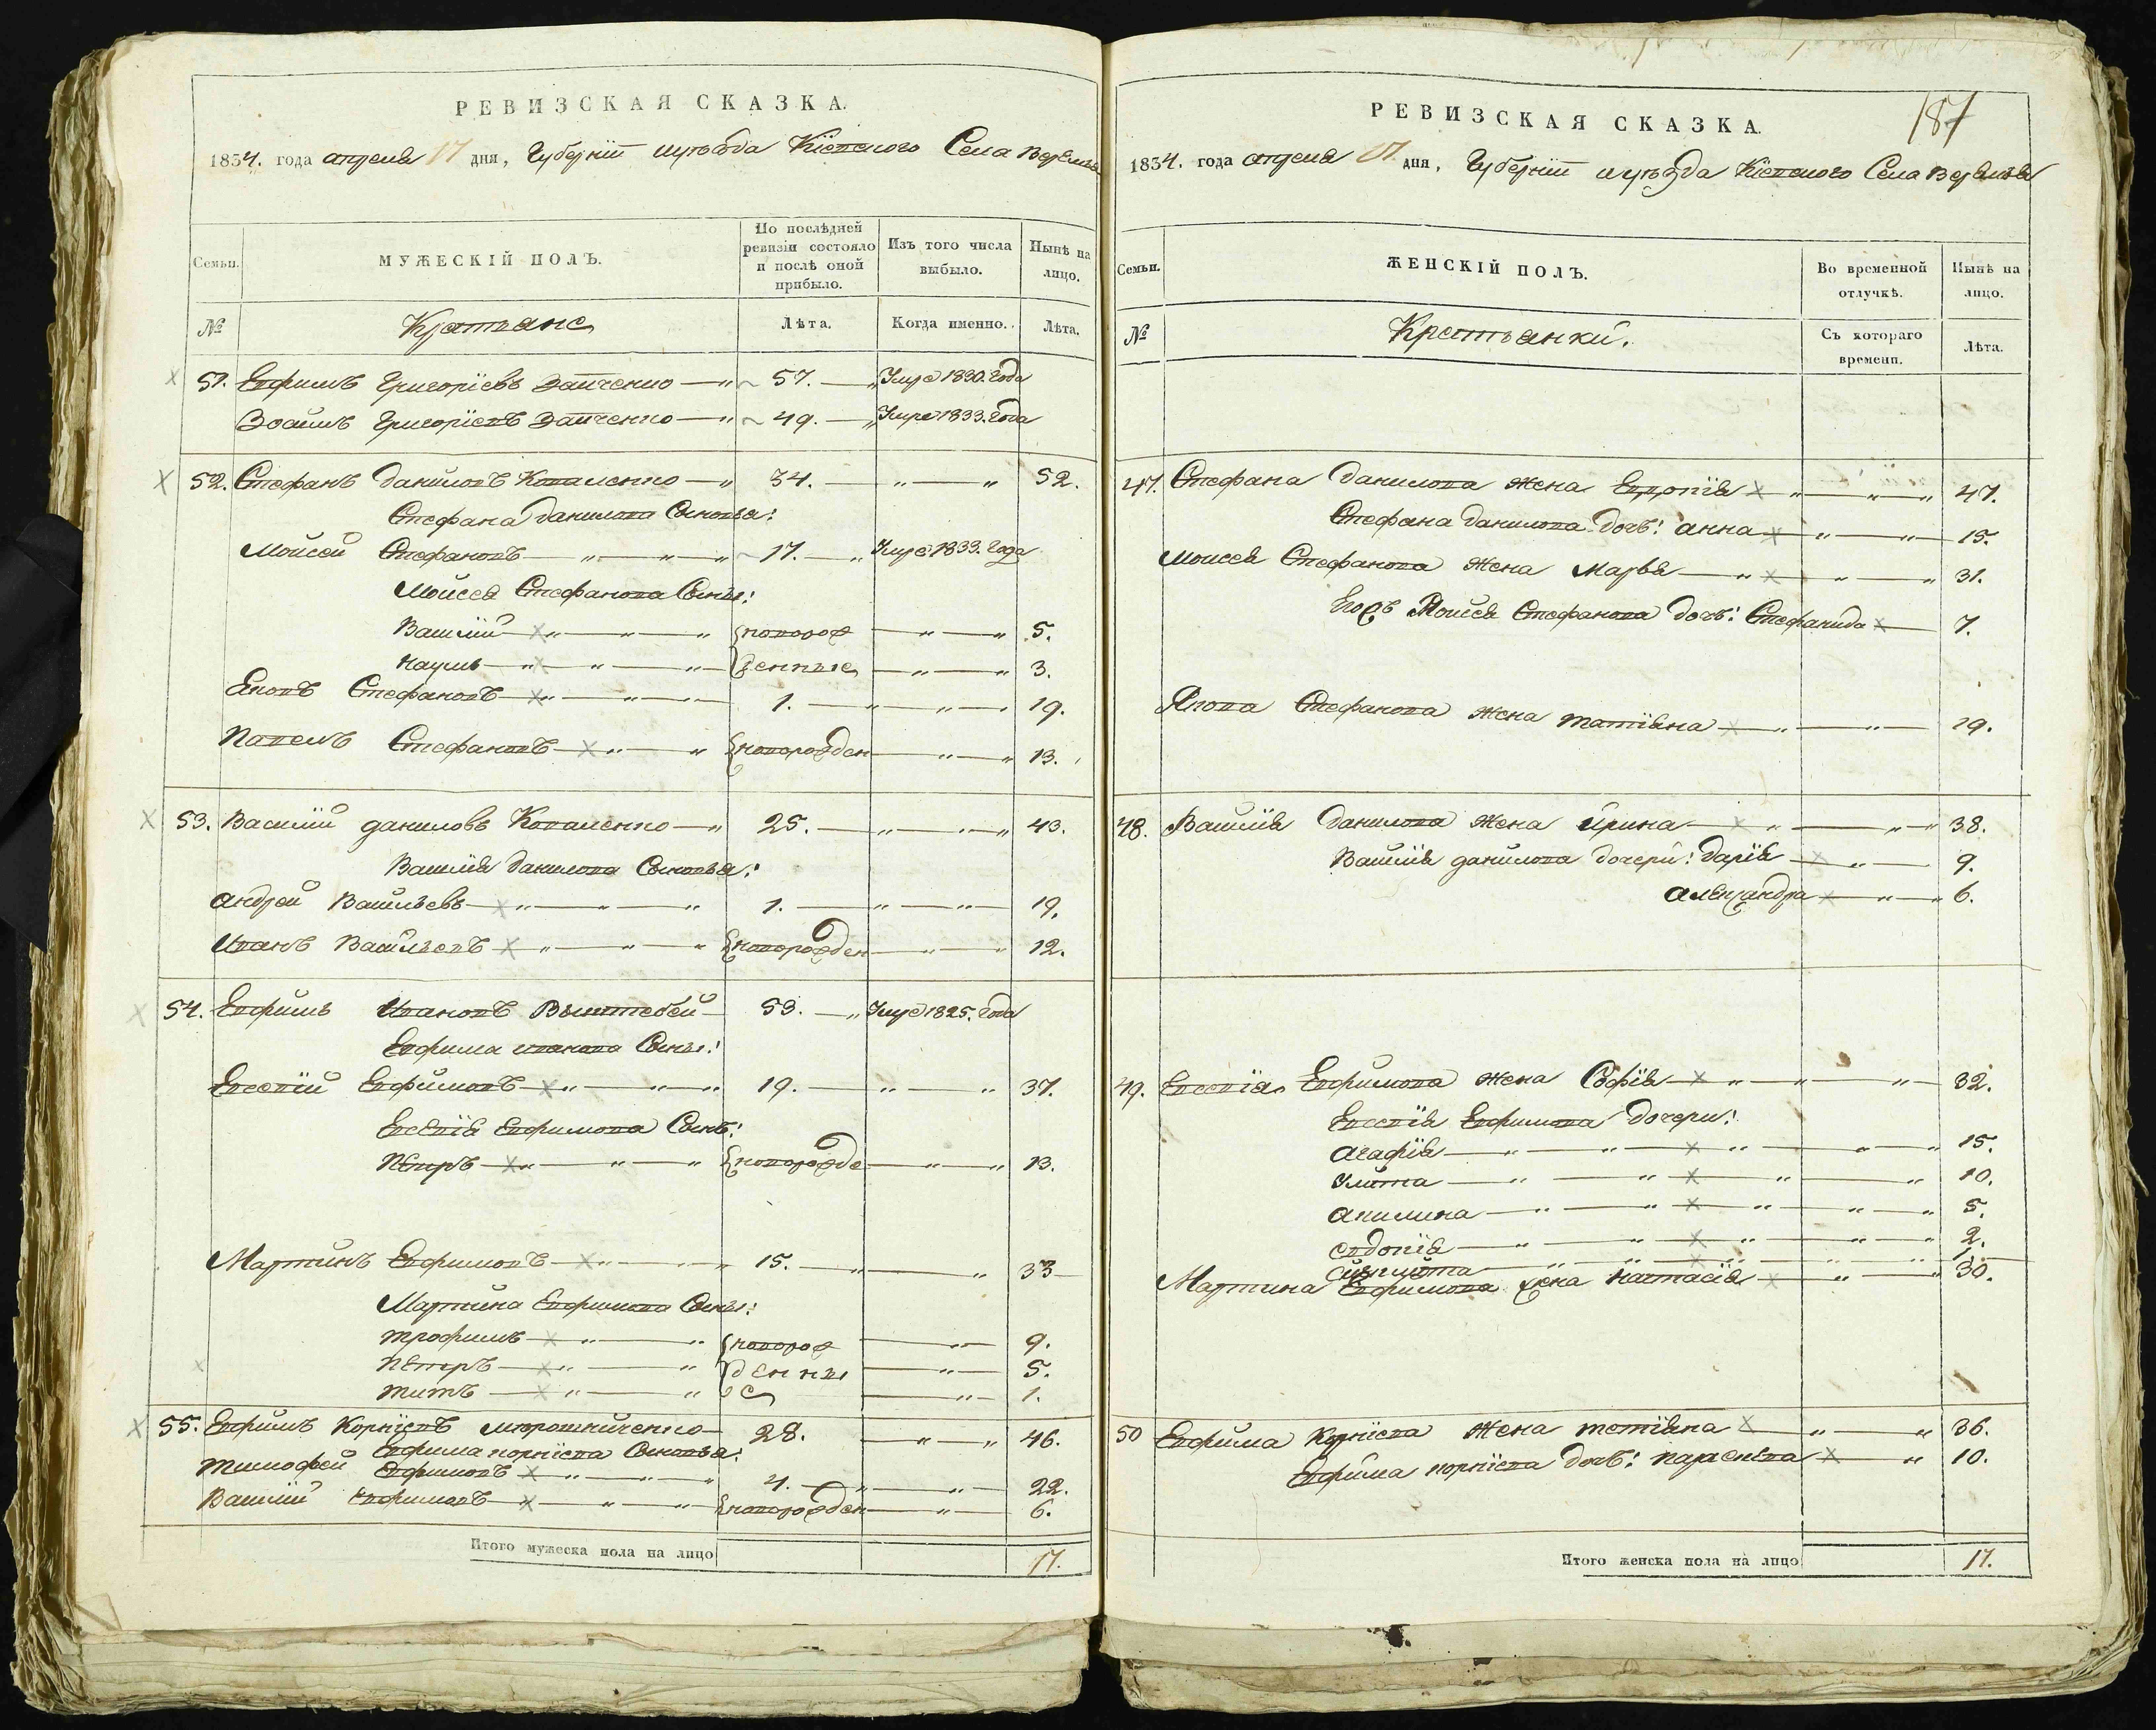 РЕВИЗСКАЯ СКАЗКА.
1834. года апреля 17 дня, Губерніи и уѣзда Кіевского Села
Семьи.
МУЖЕСКІЙ ПОЛЪ.
По послѣдней ревизіи состояло и послѣ оной прибыло.
Изъ того числа выбыло.
Нынѣ на лицо.
№
Лѣта.
Когда именно.
Лѣта.
51. Евфимъ Григоріевъ Заиченко — 57. — Умре 1830. года
Григоріевъ Заиченко — 49. — Умре 1833. года
52. Стефанъ Даниловъ Коваленко — 34. — 52.
Стефана Данилова Сыновья:
Мойсей Стефановъ — 17. — Умре 1833. года
Мойсея Стефанова Сыны:
Василій — новорож — 5.
Наумъ — денные — 3.
Яковъ Стефановъ — 1. — 19.
Павелъ Стефановъ — новорожден — 13.
53. Василій Даниловъ Коваленко — 25. — 43.
Василія Данилова Сыновья:
Андрей Васильевъ — 1. — 19.
Иванъ Васильевъ — новорожден — 12.
54. Евфимъ Ивановъ — 53. — Умре 1825. года
Евфима Иванова Сыны:
Евсевій Евфимовъ — 19. — 37.
Евсевія Евфимова Сынъ:
Петръ — новорожде — 13.
Мартинъ Евфимовъ — 15. — 33
Мартина Евфимова Сыны:
Трофимъ — новорож — 9.
Петръ — денны — 5.
Титъ — е — 1.
55. Евфимъ Корніевъ Мирошниченко — 28. — 46.
Евфима Корніева Сыновья:
Тимофей Евфимовъ — 4. — 22.
Василій Евфимовъ — новорожден — 6.
Итого мужеска пола на лицо 17.
187
РЕВИЗСКАЯ СКАЗКА.
1834. года апреля 17. дня, Губерніи и уѣзда Кіевского Села
Семьи.
ЖЕНСКІЙ ПОЛЪ.
Во временной отлучкѣ.
Нынѣ на лицо.
№
Крестьянки.
Съ котораго времени.
Лѣта.
47. Стефана Данилова жена Евдокія — 47.
Стефана Данилова дочь: Анна — 15.
Мойсея Стефанова жена Марья — 31.
Мойсея Стефанова дочь: Стефанида — 7.
Якова Стефанова жена Татіяна — 19.
48. Василія Данилова жена Ирина — 38.
Василія Данилова дочери: Дарія — 9.
Александра — 6.
49. Евсевія Евфимова жена Софія — 32.
Евсевія Евфимова дочери:
Агафія — 15.
Улита — 10.
Акилина — 5.
Евдокія — 2.
— 1.
Мартина Евфимова жена Настасія — 30.
50 Евфима Корніева жена Татіяна — 36.
Евфима Корніева дочь: Параскева — 10.
Итого женска пола на лицо 17.